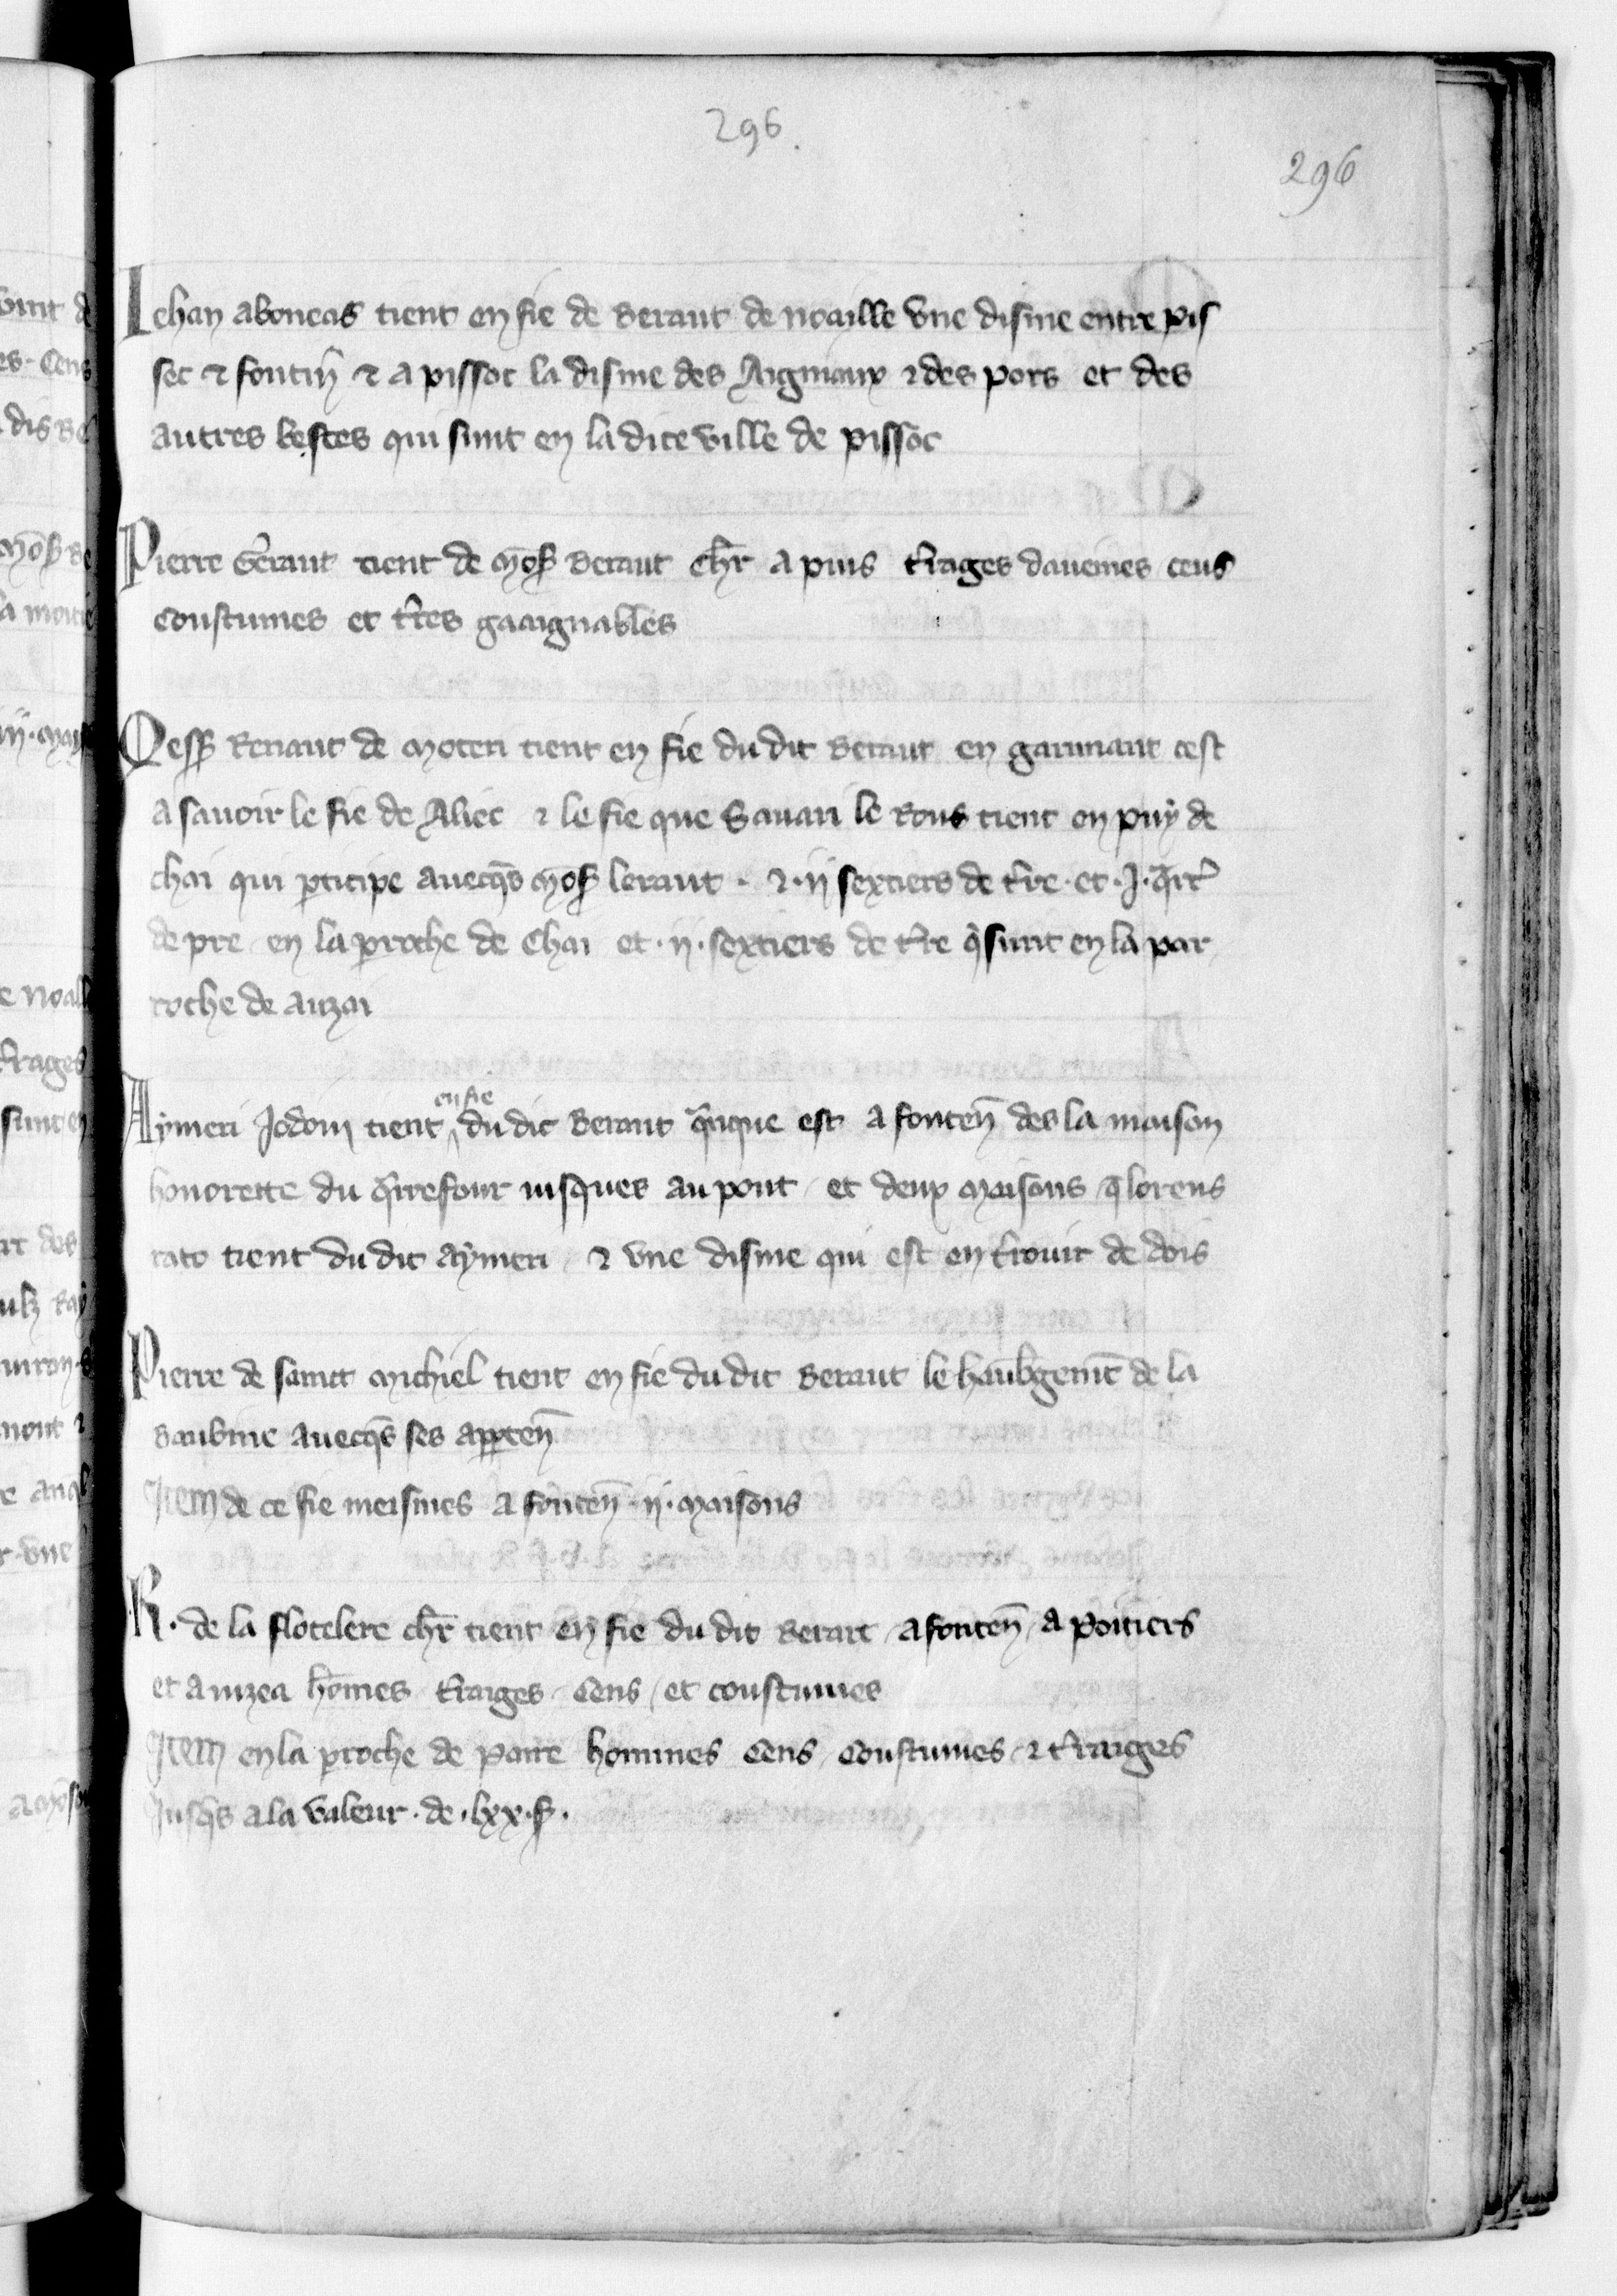 296.
296
Iehan aboneas tient en fie de Beraut de noaille vne disme entre pis
sec & fontin̄ & a pissoc la disme des Aigniaux & des pors et des
autres bestes qui sunt en la dite ville de pissoc
Pierre Geraut tient de moſ Beraut chr̄ a puis tr̄ages dauenes cens
coustumes et tr̄es gaaignables
Messꝰ Renaut de Moteri tient en fie du dit Beraut en garimant cest
a sauoir le fie de Aliec & le fie que Sauari le Rous tient en puy de
chai qui ꝑticipe auecqs̄ moſ beraut . & . ij sextiers de tr̄e . et . j . qr̄t
de pre en la ꝑroche de Chai et . ij . sextiers de tr̄e q̄ sunt en la par
roche de auzai
Aymeri Jodoin tient en fie du dit Beraut q̄nque est a fonten̄ des la maison
honorette du q̄rrefour iusques au pont et deux maisons q̄ lorens
rato tient du dit aymeri & vne disme qui est en tr̄ouir de dois
Pierre de saint michiel tient en fie du dit Beraut le haub̄geme̅t de la
Baubine auecqs̄ ses apꝑten̄
Item de ce fie meismes a fonten̄ . ij . maisons
R . de la flotelere chr̄ tient en fie du dit Berart a fonten̄ a poitiers
et a uizea ho̅mes tr̄aiges cens et coustumes
Item en la ꝑroche de paire hommes cens coustumes & tr̄raiges
Jusqs̄ a la valeur . de . lxx . ſ .